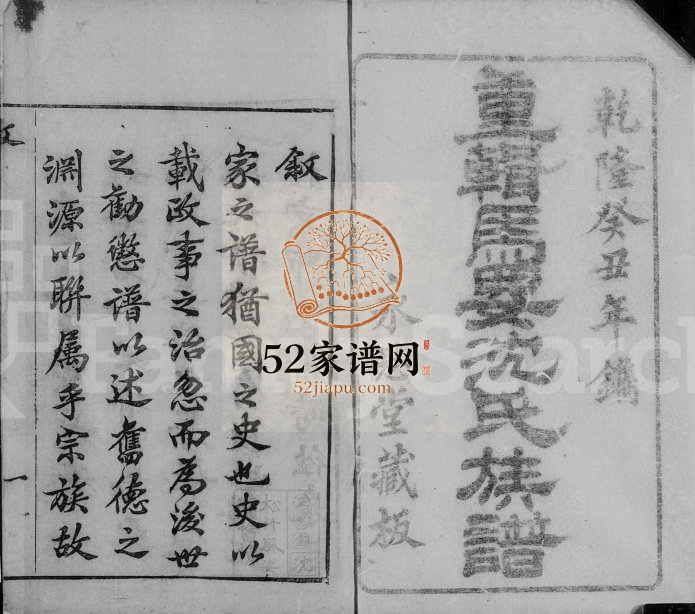 乾隆癸丑年鐫
重輯馬要沈氏族譜
永
堂藏板
叙
家之譜猶國之史也史以
載政事之治忽而為後世
之勸懲譜以述舊德之
淵源以聯属乎宗族故
一
52家谱网
52jiapu.com
FamilySearch